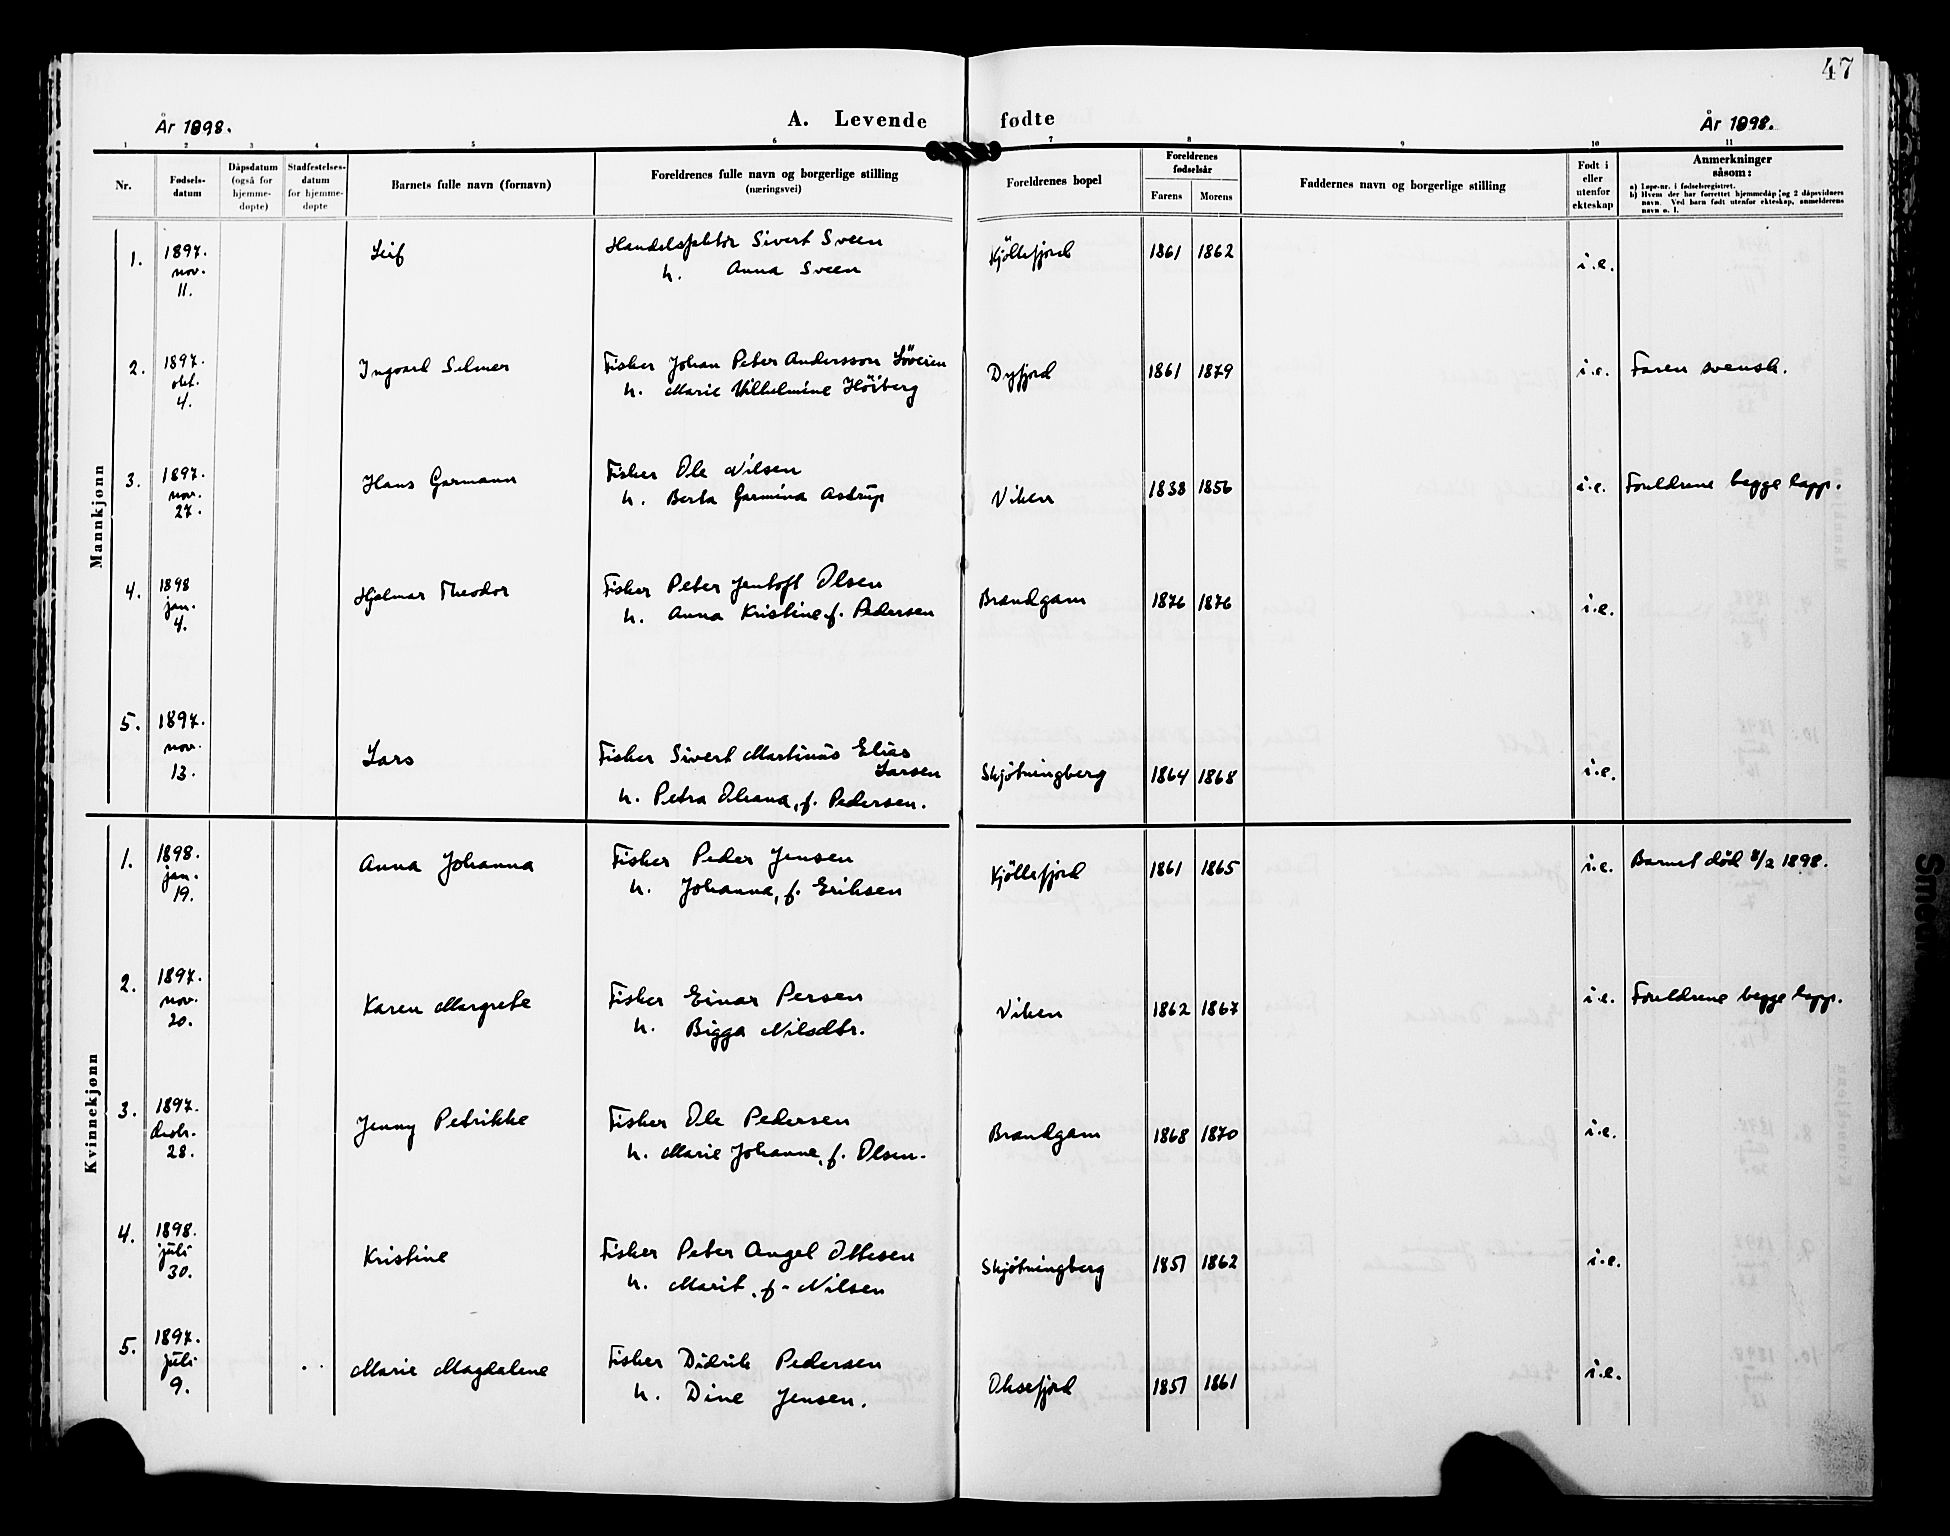 47
År 1898. A. Levende fødte År 1898.
1 2 3 4 5 6 7 8 9 10 11
Nr.
Fødsels-
datum
Dåpsdatum
(også for
hjemme-
døpte)
Stadfestelses-
datum
for hjemme-
døpte
Barnets fulle navn (fornavn)
Foreldrenes fulle navn og borgerlige stilling
(næringsvei)
Foreldrenes bopel
Foreldrenes
fødselsår
Farens Morens
Faddernes navn og borgerlige stilling
Født i
eller
utenfor
ekteskap
Anmerkninger
såsom:
a) Løpe-nr. i fødselsregistret.
b) Hvem der har forrettet hjemmedåp og 2 dåpsvidners
navn. Ved barn født utenfor ekteskap, anmelderens
navn o. l.
Mannkjønn
1. 1897. Leif Handelsfaktor Sivert Sveen Kjöllefjord 1861 1862 i.e.
nov. h. Anna Sveen
11.
2. 1897. Ingvard Selmer Fisker Johan Peter Andersson Dyfjord 1861 1879 i.e. Faren svensk.
okt. h. Marie Vilhelmine Höiberg
4.
3. 1897. Hans Garmann Fisker Ole Nilsen Viken 1838 1856 i.e. Foreldrene begge lapp.
nov. h. Berta Garmina Astrup
27.
4. 1898 Hjalmar Theodor Fisker Peter Jentoft Olsen Brandgam 1876 1876 i.e.
jan. h. Anna Kristine f. Pedersen
4.
5. 1897. Lars Fisker Sivert Martinus Elias
nov. Larsen Skjötningberg 1864 1868 i.e.
13. h. Petra Oliana, f. Pedersen.
Kvinnekjønn
1. 1898. Anna Johanna Fisker Peder Jensen Kjöllefjord 1861 1865 i.e. Barnet död 8/2 1898.
jan. h. Johanna, f. Eriksen
19.
2. 1897. Karen Margrete Fisker Einar Persen Viken 1862 1867 i.e. Foreldrene begge lapp.
nov. h. Bigga Nilsdtr.
20.
3. 1897. Jenny Petrikke Fisker Ole Pedersen Brandgam 1868 1870 i.e.
desbr. h. Marie Johanne, f. Olsen.
28.
4. 1898. Kristine Fisker Peter Angel Ottesen Skjötningberg 1851 1862 i.e.
juli h. Marit, f. Nilsen
30.
5. 1897. Marie Magdalene Fisker Didrik Pedersen Oksefjord 1851 1861 i.e.
juli h. Dine Jensen.
9.